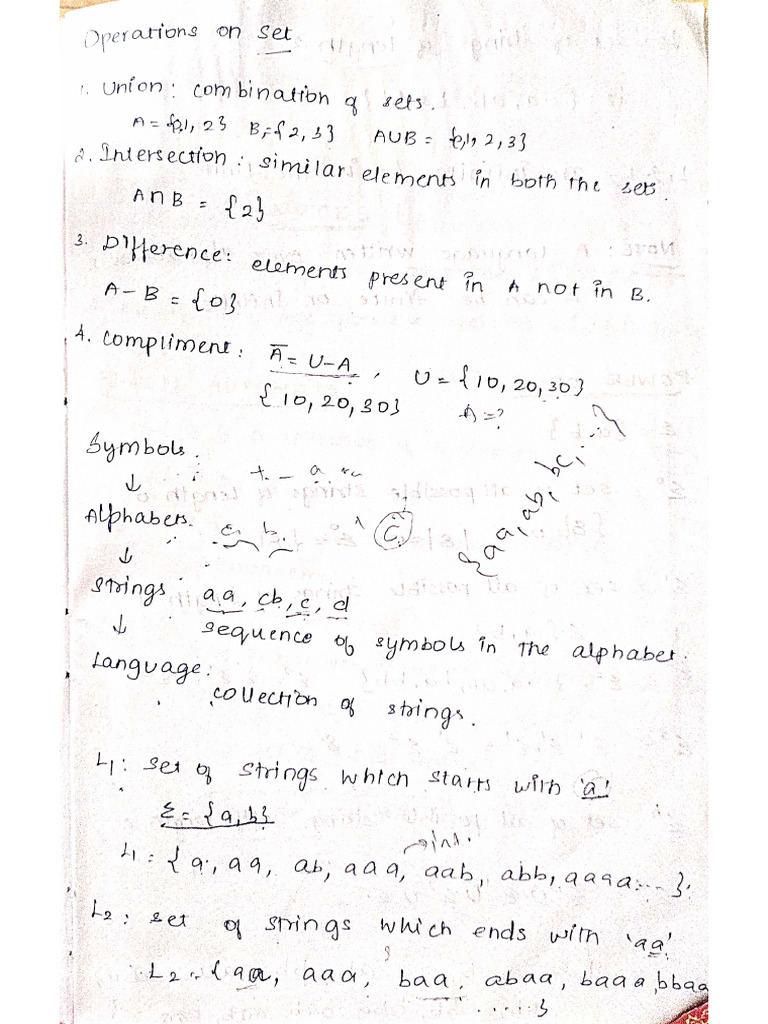 Operations on set
1. Union: combination of sets.
A = {0,1, 2} B = {2, 3} A∪B = {0,1, 2, 3}
2. Intersection: similar elements in both the sets.
A∩B = {2}
3. Difference: elements present in A not in B.
A-B = {0}
4. compliment: A̅ = U-A, U = {10, 20, 30}
{10, 20, 30} A=?
Symbols.
↓
Alphabets.
↓
{aa, ab, bc, ...}
Strings aa, cb, c, d
↓ sequence of symbols in the alphabet.
Language:
collection of strings.
L1: set of strings which starts with 'a'
Σ = {a, b}
L1 = {a, aa, ab, aaa, aab, abb, aaaa....}
L2: set of strings which ends with 'aa'
L2 = {aa, aaa, baa, abaa, baaa, bbaa
.....}